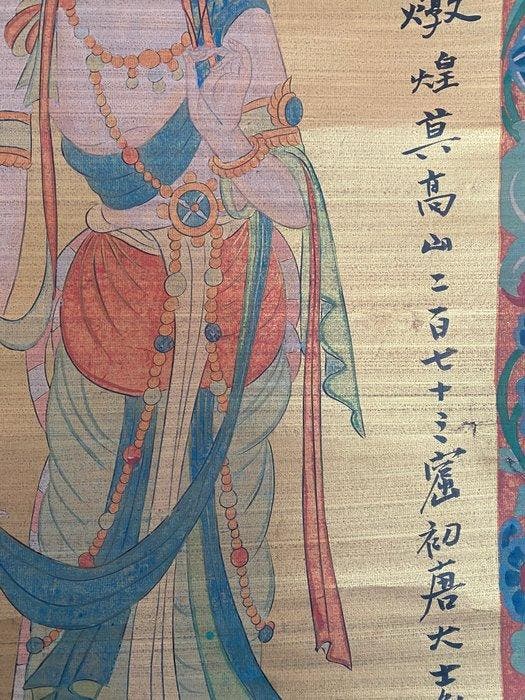 燉煌莫高山二百七十三窟初唐大士